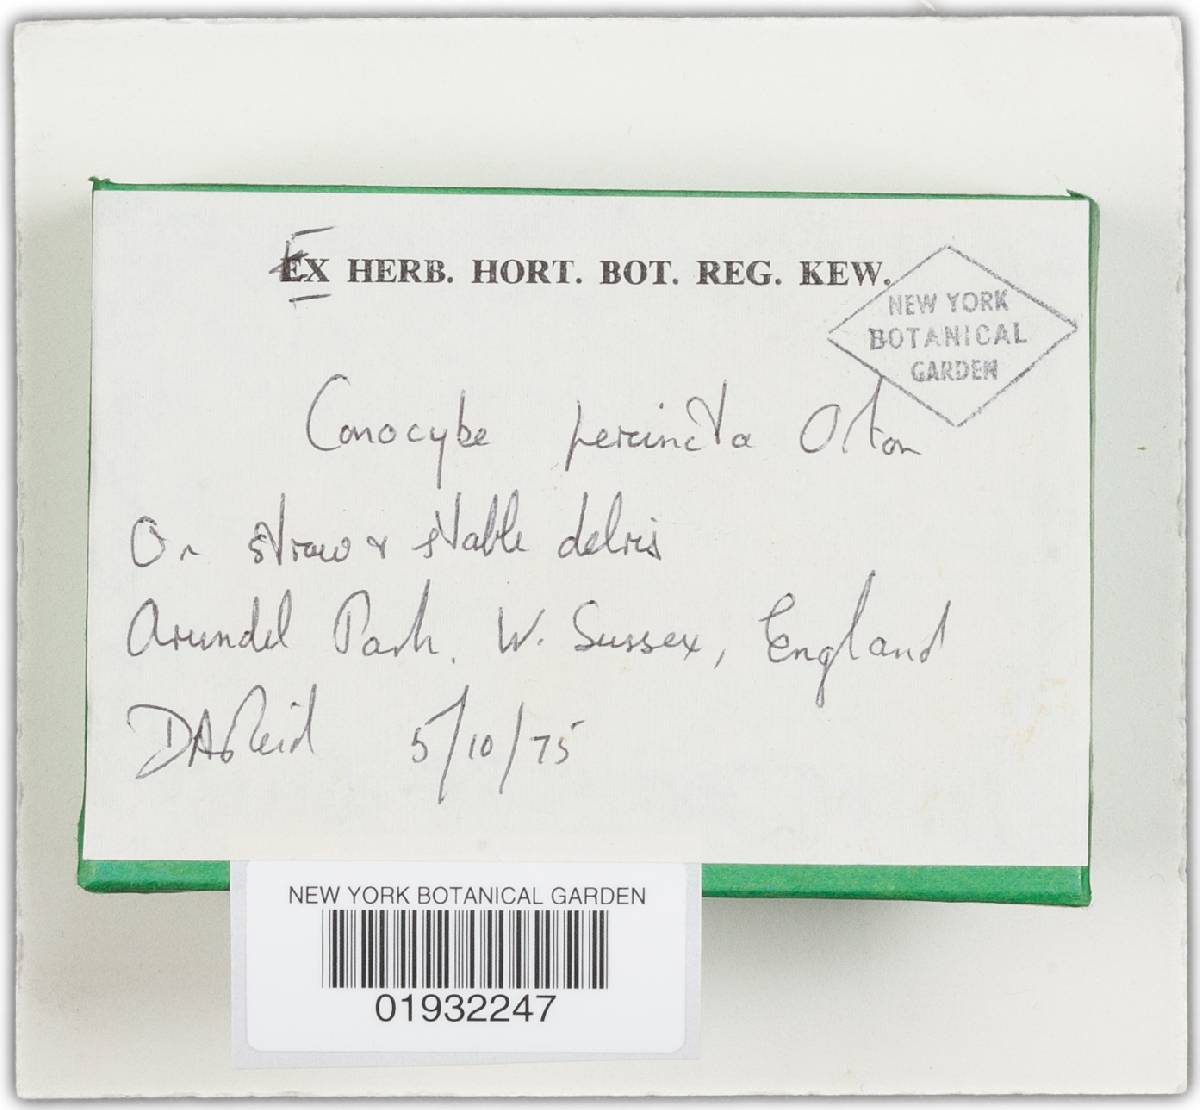 EX HERB. HORT. BOT. REG. KEW.
NEW YORK
BOTANICAL
GARDEN
Conocybe percincta Orton
On straw & stable debris
Arundel Park. W. Sussex, England
DAReid 5/10/75
NEW YORK BOTANICAL GARDEN
01932247